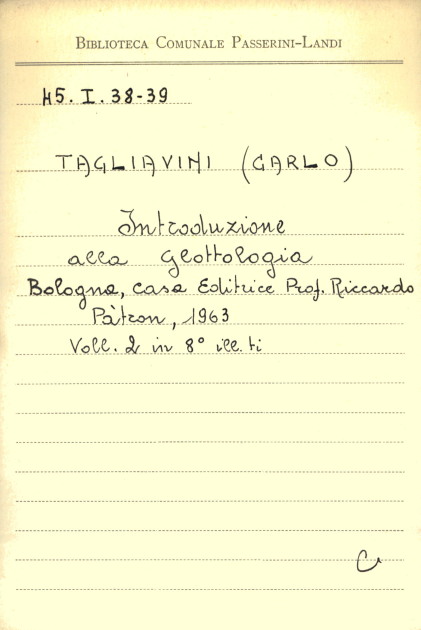 BIBLIOTECA COMUNALE PASSERINI-LANDI
H5. I. 38-39
TAGLIAVINI (CARLO)
Introduzione
alla Glottologia
Bologna, Casa Editrice Prof. Riccardo
Pàtron, 1963
Voll. 2 in 8° ill. ti